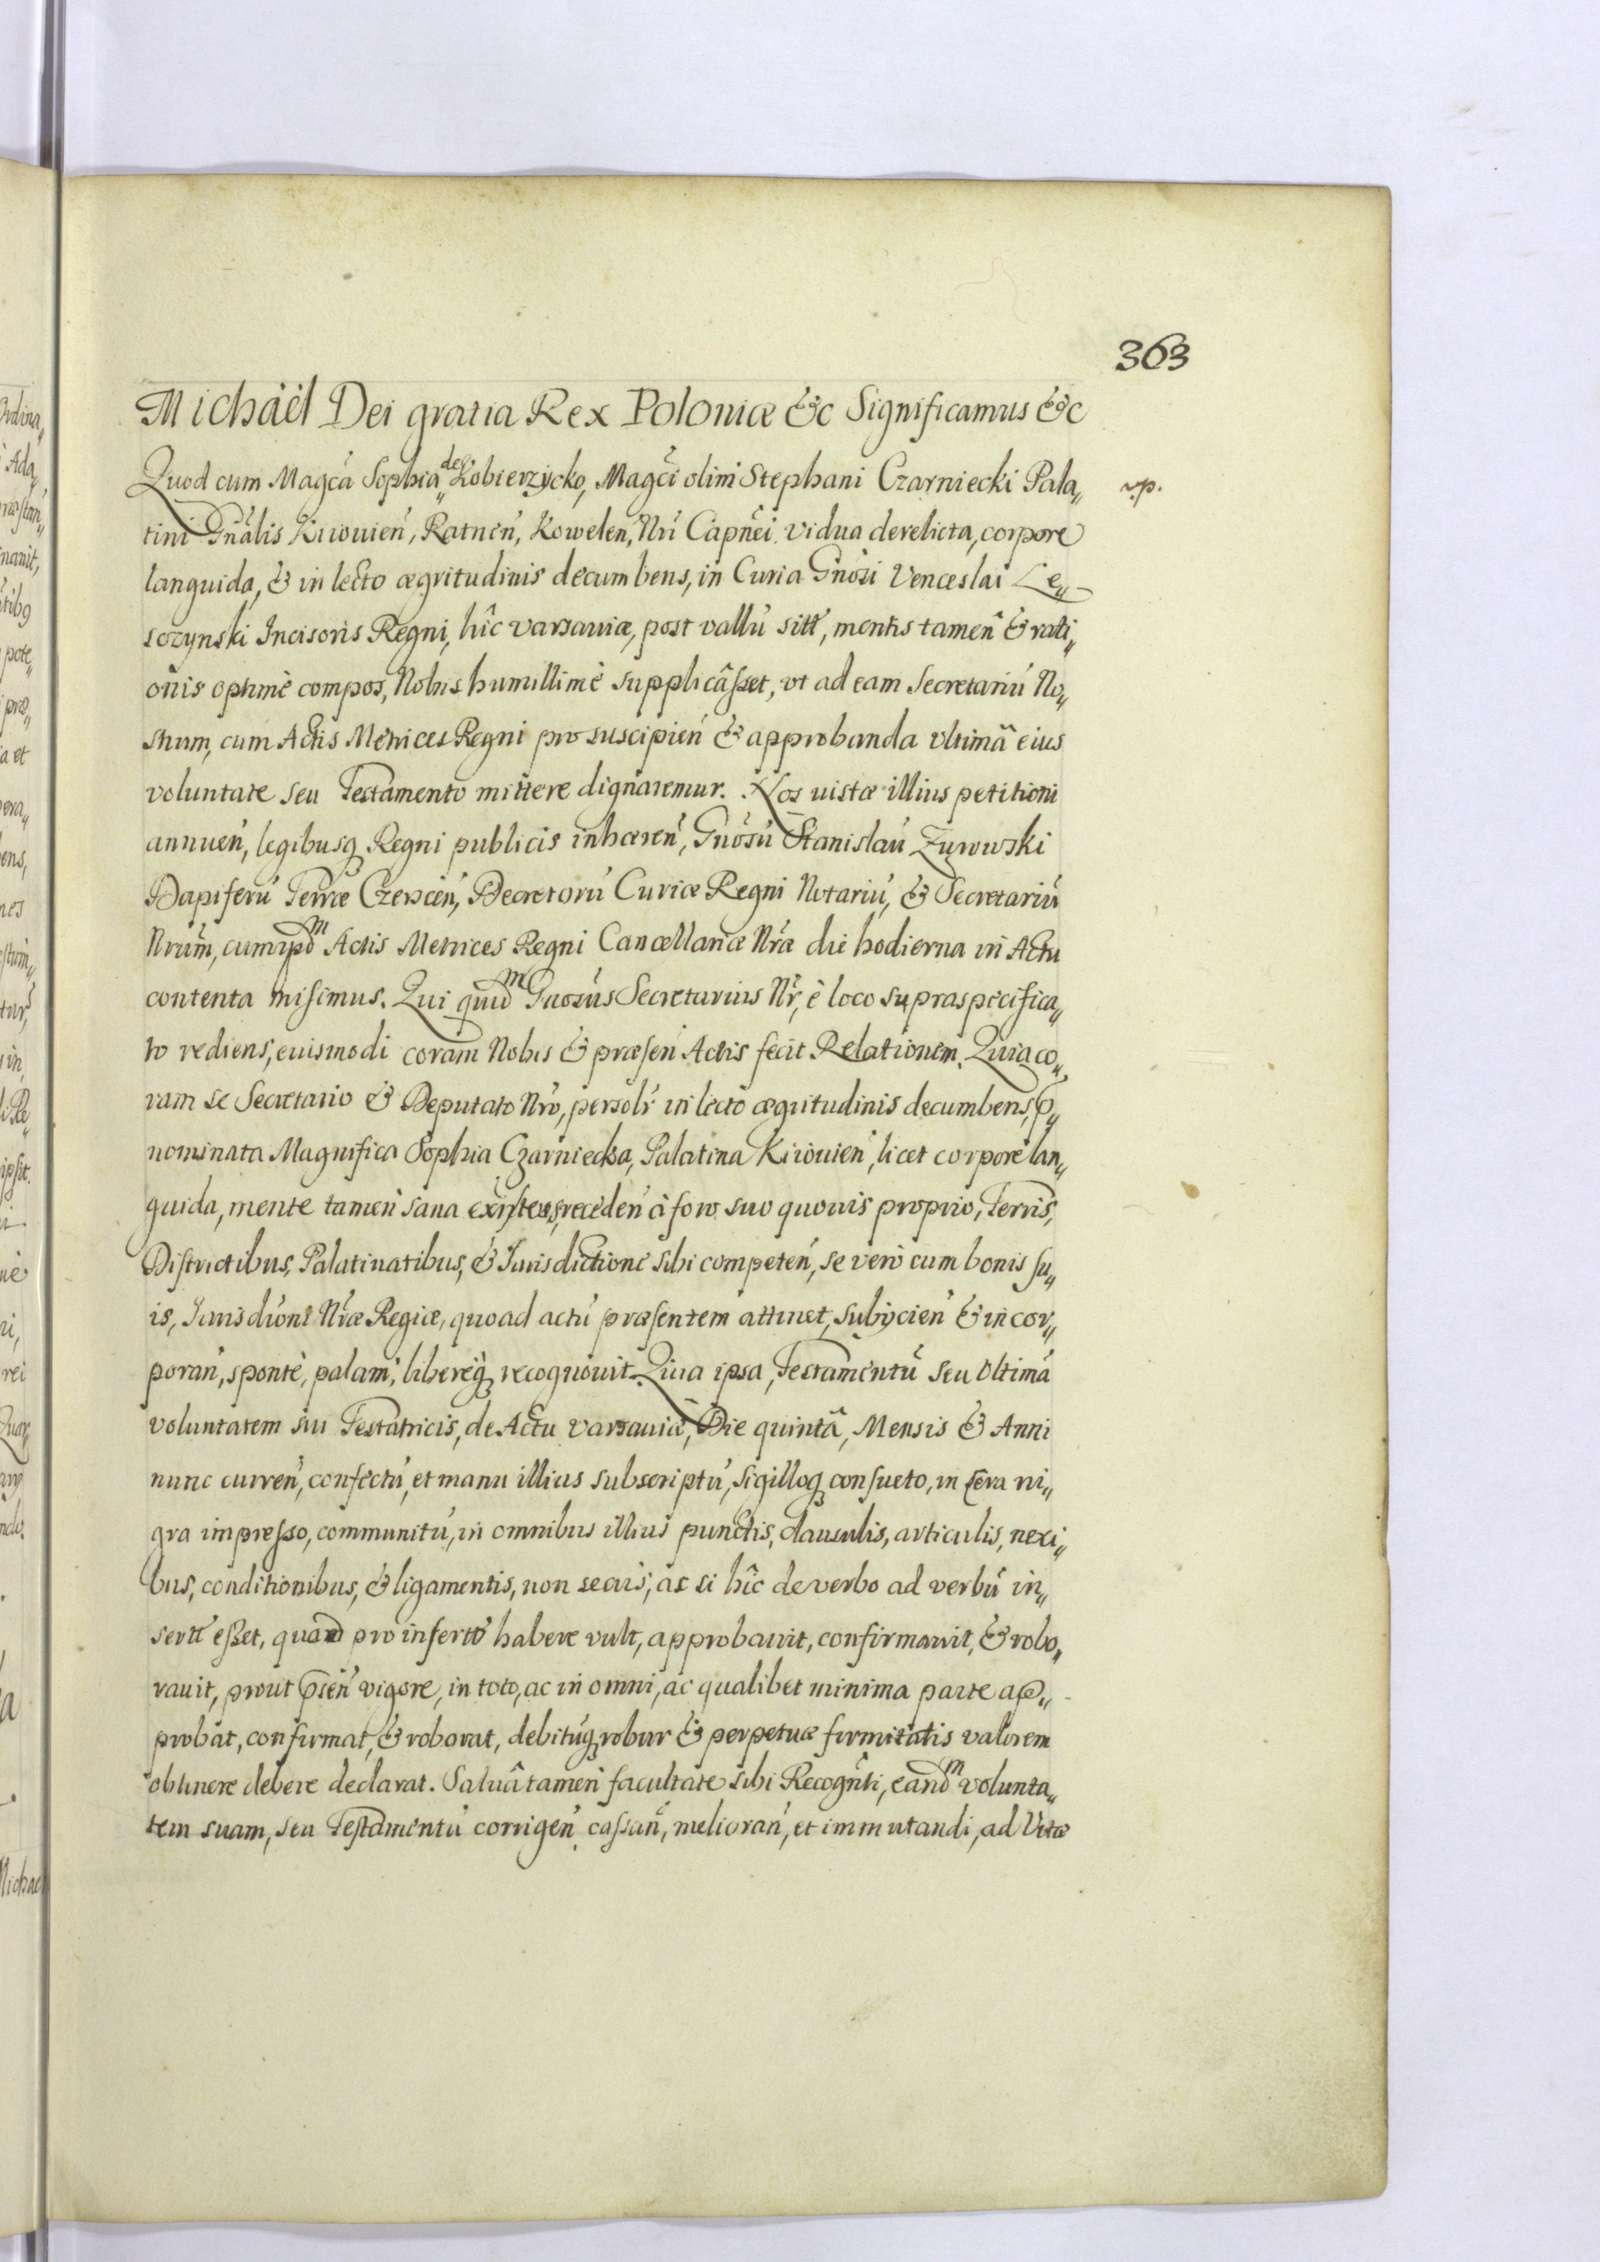 363
Michaël Dei gratia Rex Poloniæ &c Significamus &c
Quod cum Magcã Sophia de Kobierzycko, Magc̃i olim Stephani Czarniecki Pala„ vp.
tini Gñalis Kiiouień, Ratneń, Kowelen, Nri Capñei vidua derelicta, corpore
languida, & in lecto ægritudinis decumbens, in Curia Gñosi Venceslai Le„
sozynski Incisoris Regni, hîc varsauiæ, post vallũ sitt, mentis tamen & rati„
oñis optimè compos, Nobis humillimè supplicâsset, vt ad eam Secretariũ No„
strum, cum Actis Metrices Regni pro suscipień & approbanda vltimâ eius
voluntate seu Testamento mittere dignaremur. Nos iustæ illius petitioni
annueń, legibusq Regni publicis inhæreń, Gñosũ Stanislaũ Zurowski
Dapiferũ Terræ Czersceń, Decretorũ Curiæ Regni Notariũ, & Secretariũ
Nrũm, cum ipdm Actis Metrices Regni Cancellariæ Nræ die hodierna in Actu
contenta misimus. Qui quidm Gnosus Secretarius Nr, è loco supraspecifica„
to rediens, eiusmodi coram Nobis & præseń Actis fecit Relationem. Quia co„
ram se Secretario & Deputato Nrõ, persolr in lecto ægritudinis decumbens, p„
nominata Magnifica Sophia Czarniecka, Palatina Kiiouień, licet corpore lan„
guida, mente tamen sana existens, recedeń à foro suo quouis proprio, Terris,
Districtibus, Palatinatibus, & Jurisdictione sibi competeń, se verò cum bonis su„
is, Jurisdioni Nræ Regiæ, quoad actũ præsentem attinet, subijcień & incor„
porań, sponte, palam, libereq recognouit. Quia ipsa, Testamentũ seu Vltimã
voluntatem sui Testatricis, de Actu varsauiæ, Die quintâ, Mensis & Anni
nunc curreń, confectũ, et manu illius subscriptũ, sigilloq consueto, in cera ni„
gra impresso, communitũ, in omnibus illius punctis, clausulis, articulis, nexi„
bus, conditionibus, & ligamentis, non secus, ac si hîc de verbo ad verbũ in„
sertt esset, quod pro inserto habere vult, approbauit, confirmauit, & robo„
rauit, prout pseń vigore, in toto, ac in omni, ac qualibet minima parte ap„
probat, confirmat, & roborat, debitũq robur & perpetuæ firmitatis valorem
obtinere debere declarat. Saluâ tamen facultate sibi Recogñti, eandm volunta„
tem suam, seu Testamentũ corrigeń cassań, meliorań, et immutandi, ad Vitæ